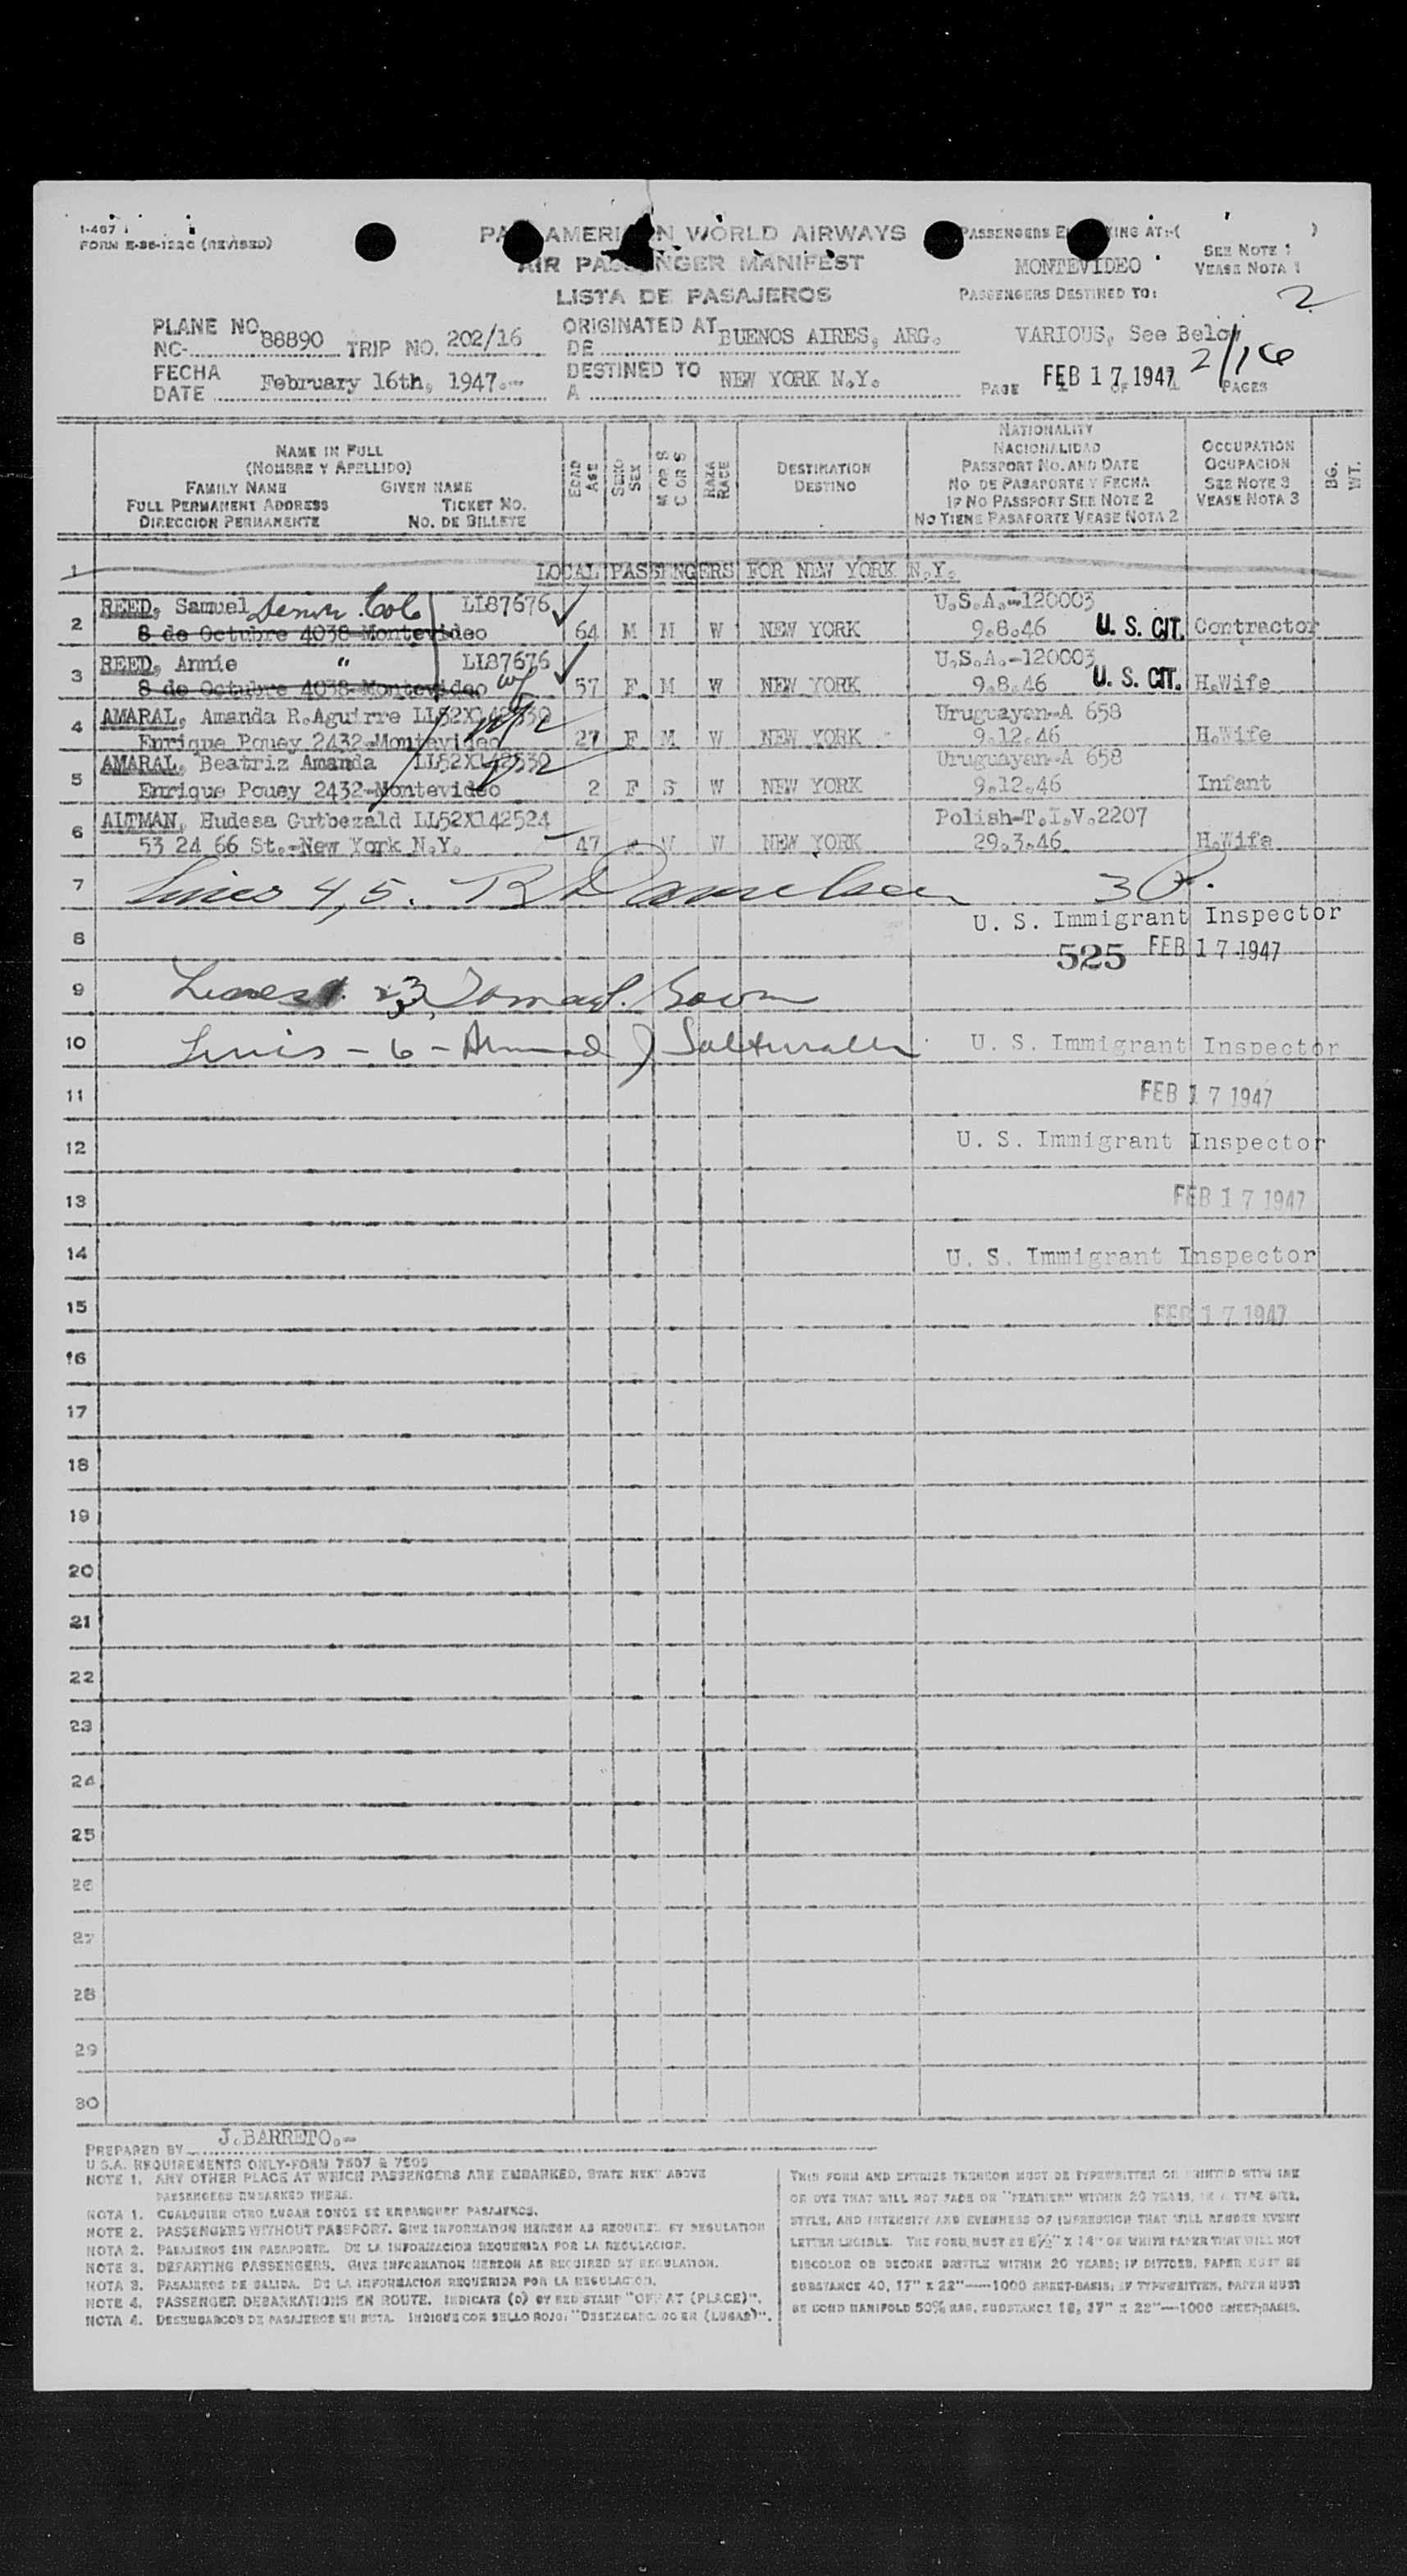 I-467
FORM E-86-122C (REVISED)
PAN AMERICAN WORLD AIRWAYS
AIR PASSENGER MANIFEST
LISTA DE PASAJEROS
PASSENGERS EMBARKING AT:-( )
MONTEVIDEO
SEE NOTE 1
VEASE NOTA 1
PASSENGERS DESTINED TO:
2
VARIOUS, See Below
2/16
PLANE NO.
NC- 88890 TRIP NO. 202/16
ORIGINATED AT
DE BUENOS AIRES, ARG.
FECHA
DATE February 16th, 1947.--
DESTINED TO
A NEW YORK N.Y.
PAGE 1 OF 1 PAGES
FEB 17 1947
NAME IN FULL
(NOMBRE Y APELLIDO)
FAMILY NAME GIVEN NAME
FULL PERMANENT ADDRESS TICKET NO.
DIRECCION PERMANENTE NO. DE BILLETE
EDAD
AGE
SEXO
SEX
M OR S
C OR S
RAZA
RACE
DESTINATION
DESTINO
NATIONALITY
NACIONALIDAD
PASSPORT NO. AND DATE
NO DE PASAPORTE Y FECHA
IF NO PASSPORT SEE NOTE 2
NO TIENE PASAPORTE VEASE NOTA 2
OCCUPATION
OCUPACION
SEE NOTE 3
VEASE NOTA 3
BG.
WT.
1 LOCAL PASSENGERS FOR NEW YORK N.Y.
2 REED, Samuel Denver Colo LL87676 U.S.A.-120003
8 de Octubre 4038-Montevideo 64 M M W NEW YORK 9.8.46 U. S. CIT. Contractor
3 REED, Annie " LL87676 U.S.A.-120003
8 de Octubre 4038-Montevideo 57 F M W NEW YORK 9.8.46 U. S. CIT. H.Wife
4 AMARAL, Amanda R.Aguirre LL52X142530 Uruguayan-A 658
Enrique Pouey 2432-Montevideo 27 F M W NEW YORK 9.12.46 H.Wife
5 AMARAL, Beatriz Amanda LL52X142530 Uruguayan-A 658
Enrique Pouey 2432-Montevideo 2 F S W NEW YORK 9.12.46 Infant
6 ALTMAN, Hudesa Gutbezald LL52X142524 Polish-T.I.V.2207
53 24 66 St.-New York N.Y. 47 W NEW YORK 29.3.46 H.Wife
7 Lines 4,5.
U. S. Immigrant Inspector
8 525 FEB 17 1947
9 Lines
10 Lines - 6 -
U. S. Immigrant Inspector
11 FEB 17 1947
12 U. S. Immigrant Inspector
13 FEB 17 1947
14 U. S. Immigrant Inspector
15 FEB 17 1947
16
17
18
19
20
21
22
23
24
25
26
27
28
29
30
PREPARED BY J.BARRETO.-
U.S.A. REQUIREMENTS ONLY-FORM 7507 & 7509
NOTE 1. ANY OTHER PLACE AT WHICH PASSENGERS ARE EMBARKED, STATE NEXT ABOVE
PASSENGERS EMBARKED THERE.
NOTA 1. CUALQUIER OTRO LUGAR DONDE SE EMBARQUEN PASAJEROS.
NOTE 2. PASSENGERS WITHOUT PASSPORT. GIVE INFORMATION HEREON AS REQUIRED BY REGULATION
NOTA 2. PASAJEROS SIN PASAPORTE. DE LA INFORMACION REQUERIDA POR LA REGULACION.
NOTE 3. DEPARTING PASSENGERS. GIVE INFORMATION HEREON AS REQUIRED BY REGULATION.
NOTA 3. PASAJEROS DE SALIDA. DE LA INFORMACION REQUERIDA POR LA REGULACION.
NOTE 4. PASSENGER DEBARKATIONS EN ROUTE. INDICATE (D) BY RED STAMP "OFF AT (PLACE)".
NOTA 4. DESEMBARCOS DE PASAJEROS EN RUTA. INDIQUE CON SELLO ROJO: "DESEMBARCADO EN (LUGAR)".
THIS FORM AND ENTRIES THEREON MUST BE TYPEWRITTEN OR PRINTED WITH INK
OR DYE THAT WILL NOT FADE OR "FEATHER" WITHIN 20 YEARS, IN A TYPE SIZE,
STYLE, AND INTENSITY AND EVENNESS OF IMPRESSION THAT WILL RENDER EVERY
LETTER LEGIBLE. THE FORM MUST BE 8½" X 14" ON WHITE PAPER THAT WILL NOT
DISCOLOR OR BECOME BRITTLE WITHIN 20 YEARS; IF DITTOED, PAPER MUST BE
SUBSTANCE 40, 17" X 22"—1000 SHEET-BASIS; IF TYPEWRITTEN, PAPER MUST
BE BOND MANIFOLD 50% RAG, SUBSTANCE 18, 17" X 22"—1000 SHEET-BASIS.